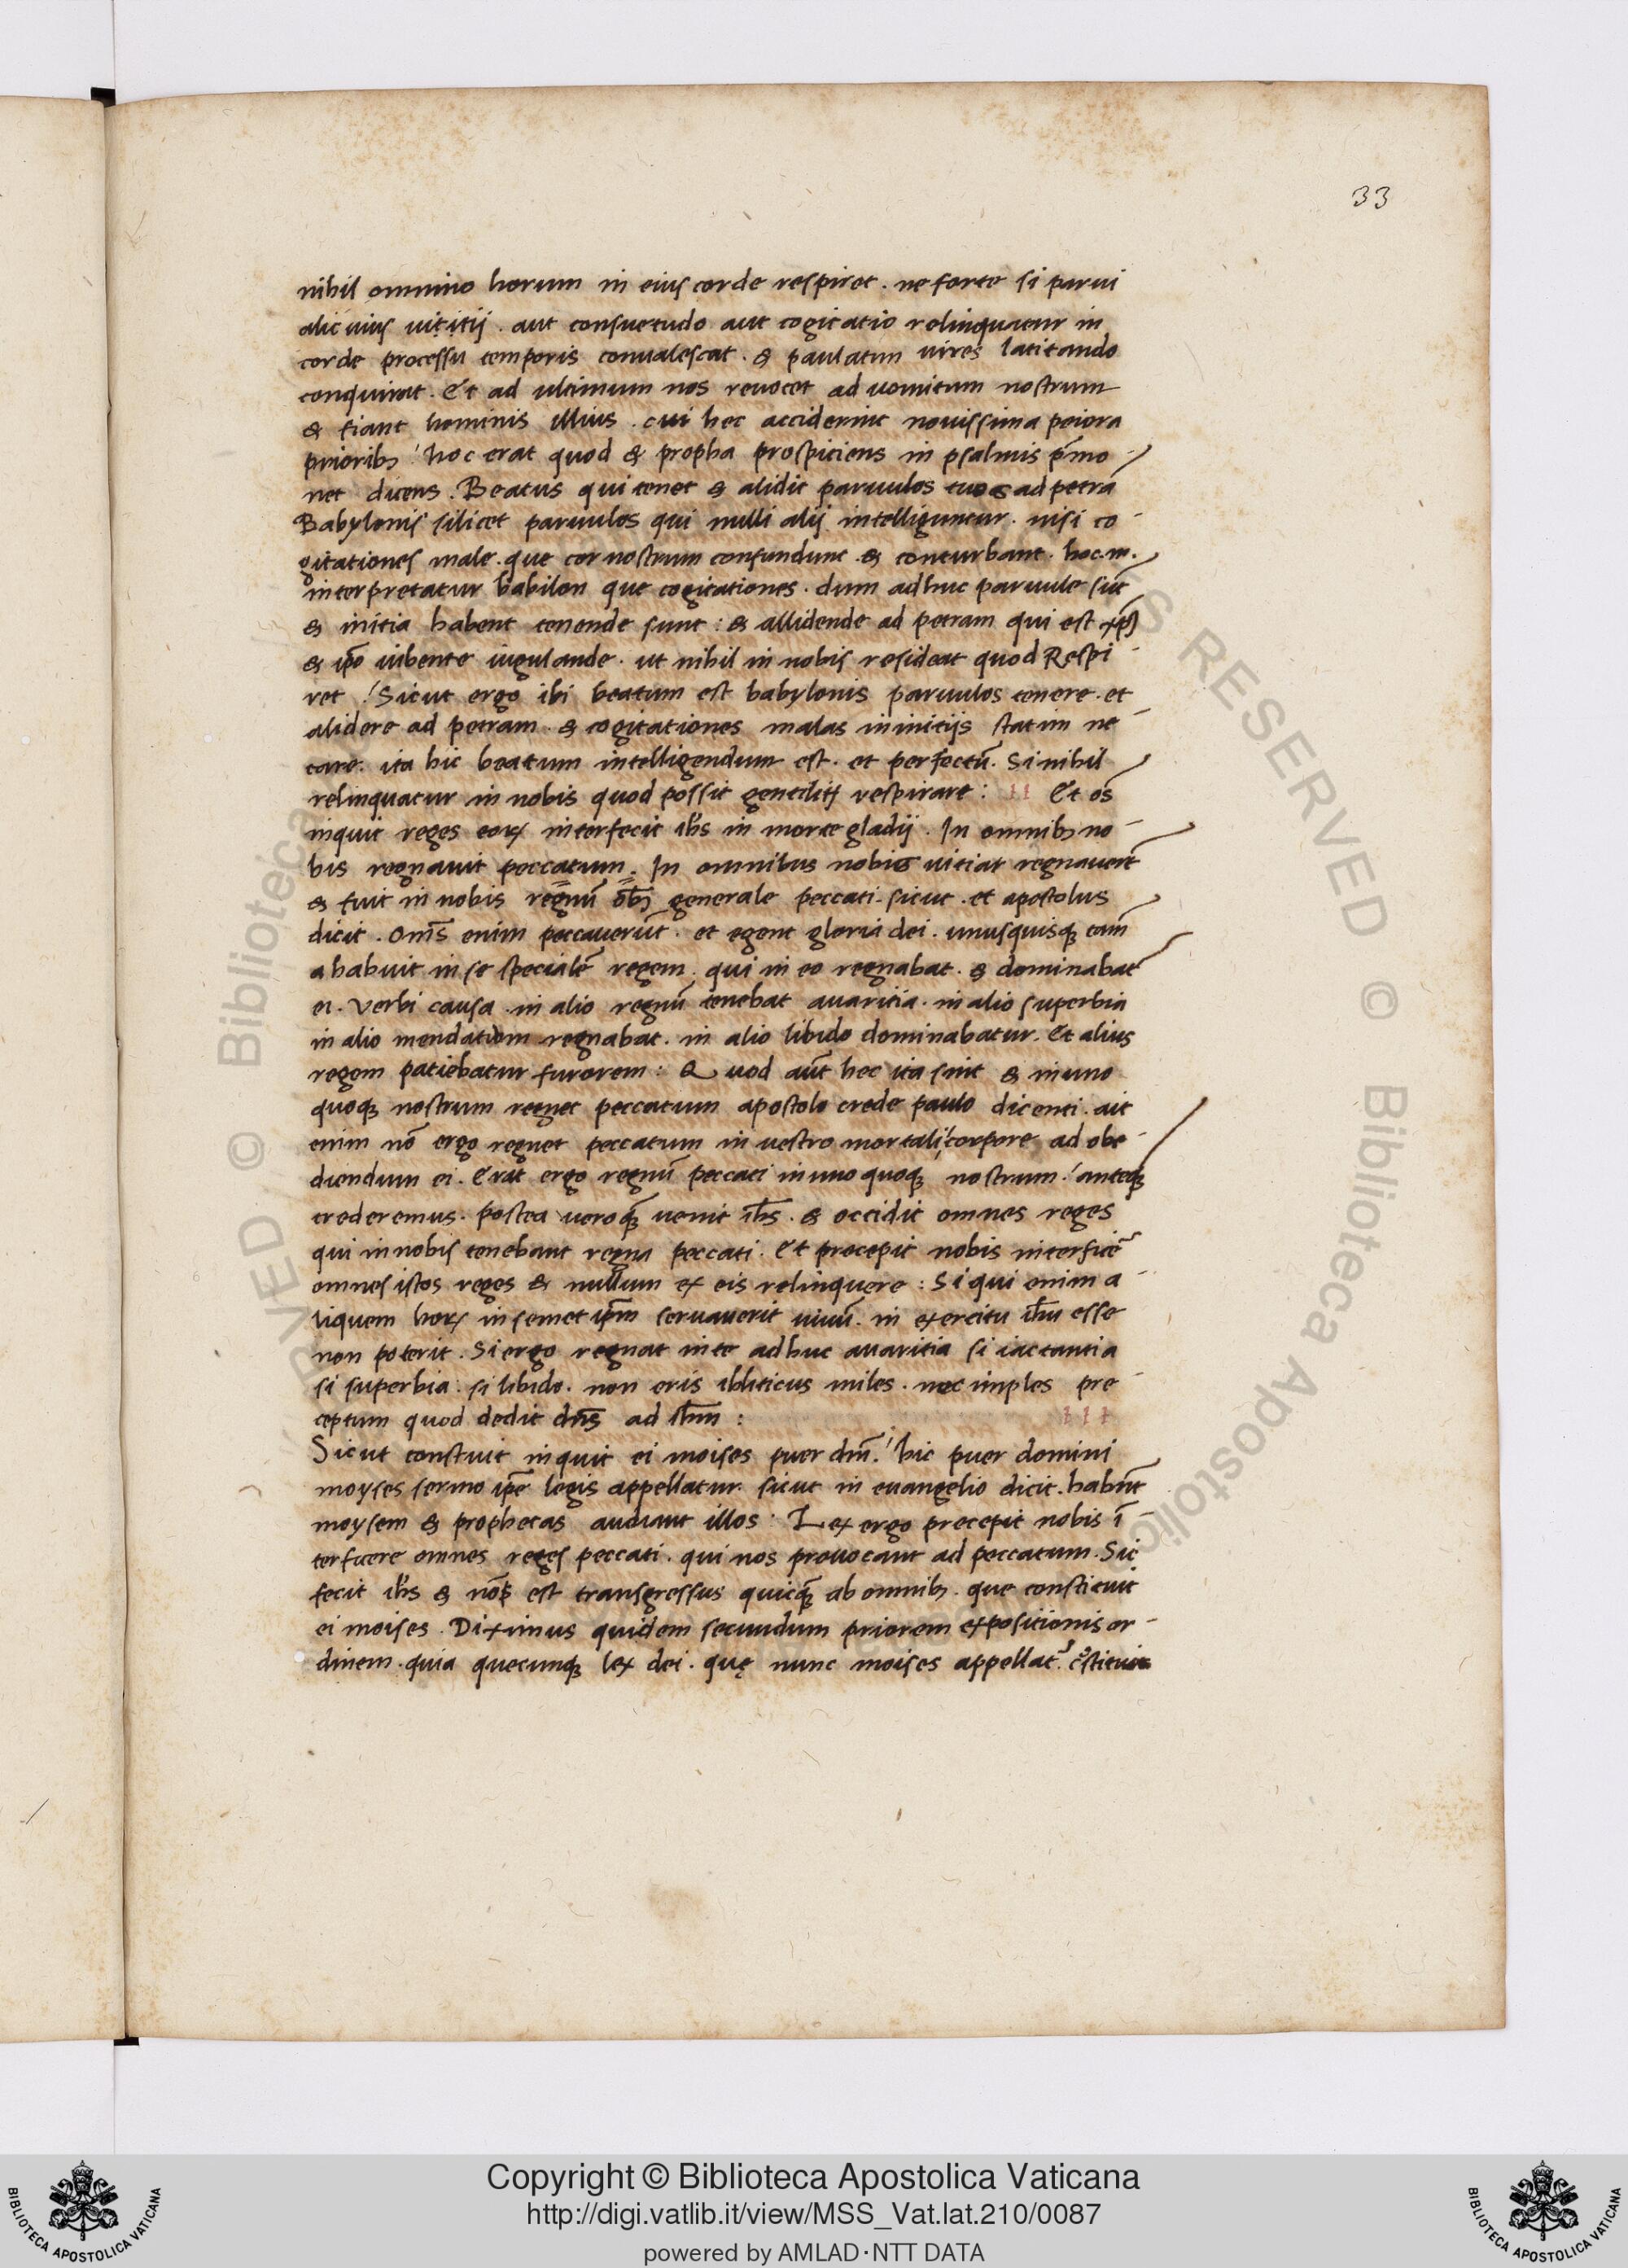 33
nihil omnino horum in eius corde respiret . ne forte si parui
alicuius uititij . aut consuetudo aut cogitatio relinquatur in
corde processu temporis conualescat . & paulatim uires latitando
conquirat . Et ad ultimum nos reuocet ad uomitum nostrum
& fiant hominis illius . cui hec acciderint nouissima peiora
priorib; ! hoc erat quod & propha prospiciens in psalmis p̃mo-
net dicens . Beatus qui tenet & alidit paruulos tuos ad petrã
Babylonis silicet paruulos qui nulli alij intelliguntur . nisi co-
gitationes male . que cor nostrum confundunt . & conturbant . hoc .n.
interpretatur babilon que cogitationes . dum adhuc paruule sũt
& initia habent tenende sunt : & allidende ad petram qui est xp̃s
& ip̃o iubente iugulande . ut nihil in nobis resideat quod Respi-
ret ! Sicut ergo ibi beatum est babylonis paruulos tenere . et
alidere ad petram . & cogitationes malas in initijs statim ne-
care . ita hic beatum intelligendum est . et perfectũ . Si nihil
relinquatur in nobis quod possit respirare : II Et oẽs
inquit reges eoꝝ interfecit ih̃s in morte gladij . In omnib; no-
bis regnauit peccatum . In omnibus nobis uitiat regnauerũt
& fuit in nobis regnũ generale peccati . sicut . et apostolus
dicit . Om̃s enim peccauerũt . et egent gloria dei . unusquisq; tam̃
a habuit in se specialẽ regem . qui in eo regnabat . & dominabat̃
ei . Verbi causa . in alio regnũ tenebat auaritia . in alio superbia
in alio mendatium regnabat . in alio libido dominabatur . Et alius
regem patiebatur furorem : Quod aũt hec ita sint & in uno
quoq; nostrum regnet peccatum apostolo crede paulo dicenti . ait
enim nõ ergo regnet peccatum in uestro mortali corpore ad obe-
diendum ei . Erat ergo regnũ peccati in uno quoq; nostrum ! anteq̃
crederemus . postea ueroq̃ uenit ih̃s . & occidit omnes reges
qui in nobis tenebant regna peccati . Et precepit nobis interficẽ
omnes istos reges & nullum ex eis relinquere : Si qui enim a-
liquem hoꝝ in semet ip̃m seruauerit uiuũ . in exercitu ih̃u esse
non poterit . Si ergo regnat in te adhuc auaritia si iactantia
si superbia . si libido . non eris miles . nec imples pre-
ceptum quod dedit dñs ad ih̃m : III
Sicut constuit inquit ei moises puer dñi ! hic puer domini
moyses sermo ip̃e legis appellatur sicut in euangelio dicit . habent̃
moysem & prophetas audiant illos . Lex ergo precepit nobis ĩ-
terficere omnes reges peccati . qui nos prouocant ad peccatum . Sic
fecit ih̃s & nõ est transgressus quicq̃ ab omnib; . que constituit
ei moises . Diximus quidem secundum priorem expositionis or-
dinem . quia quecunq; lex dei . quę nunc moises appellat̃ . cõstituit
Copyright © Biblioteca Apostolica Vaticana
http://digi.vatlib.it/view/MSS_Vat.lat.210/0087
powered by AMLAD·NTT DATA